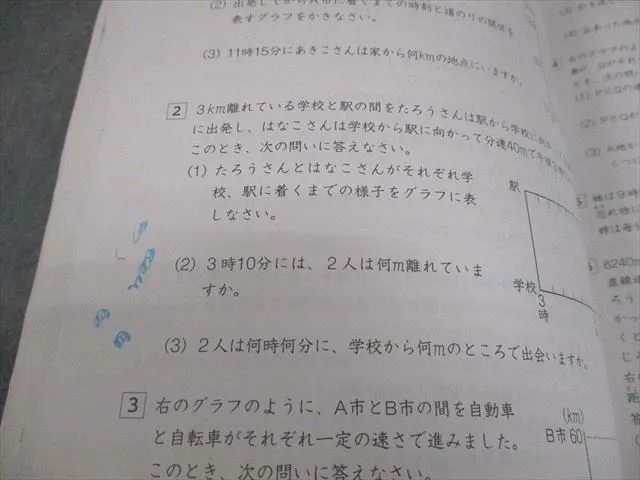 (2) 出発してからA市に着くまでの時刻と道のりの関係を
表すグラフをかきなさい。
(3) 11時15分にあきこさんは家から何kmの地点にいますか。
2 3km離れている学校と駅の間をたろうさんは駅から学校に向かって
に出発し、はなこさんは学校から駅に向かって分速40mで午後
このとき、次の問いに答えなさい。
(1) たろうさんとはなこさんがそれぞれ学
校、駅に着くまでの様子をグラフに表
しなさい。
駅
学校
3
時
(2) 3時10分には、2人は何m離れていま
すか。
(3) 2人は何時何分に、学校から何mのところで出会いますか。
3 右のグラフのように、A市とB市の間を自動車
と自転車がそれぞれ一定の速さで進みました。
このとき、次の問いに答えなさい。
(km)
B市 60
右のグラフの
(1) PとQ
(2) PとQ
(3) A間
妹は9時
忘れ物に
姉は毎分
6240m
直線道
ろう
かっ
くと
じろ
右
距